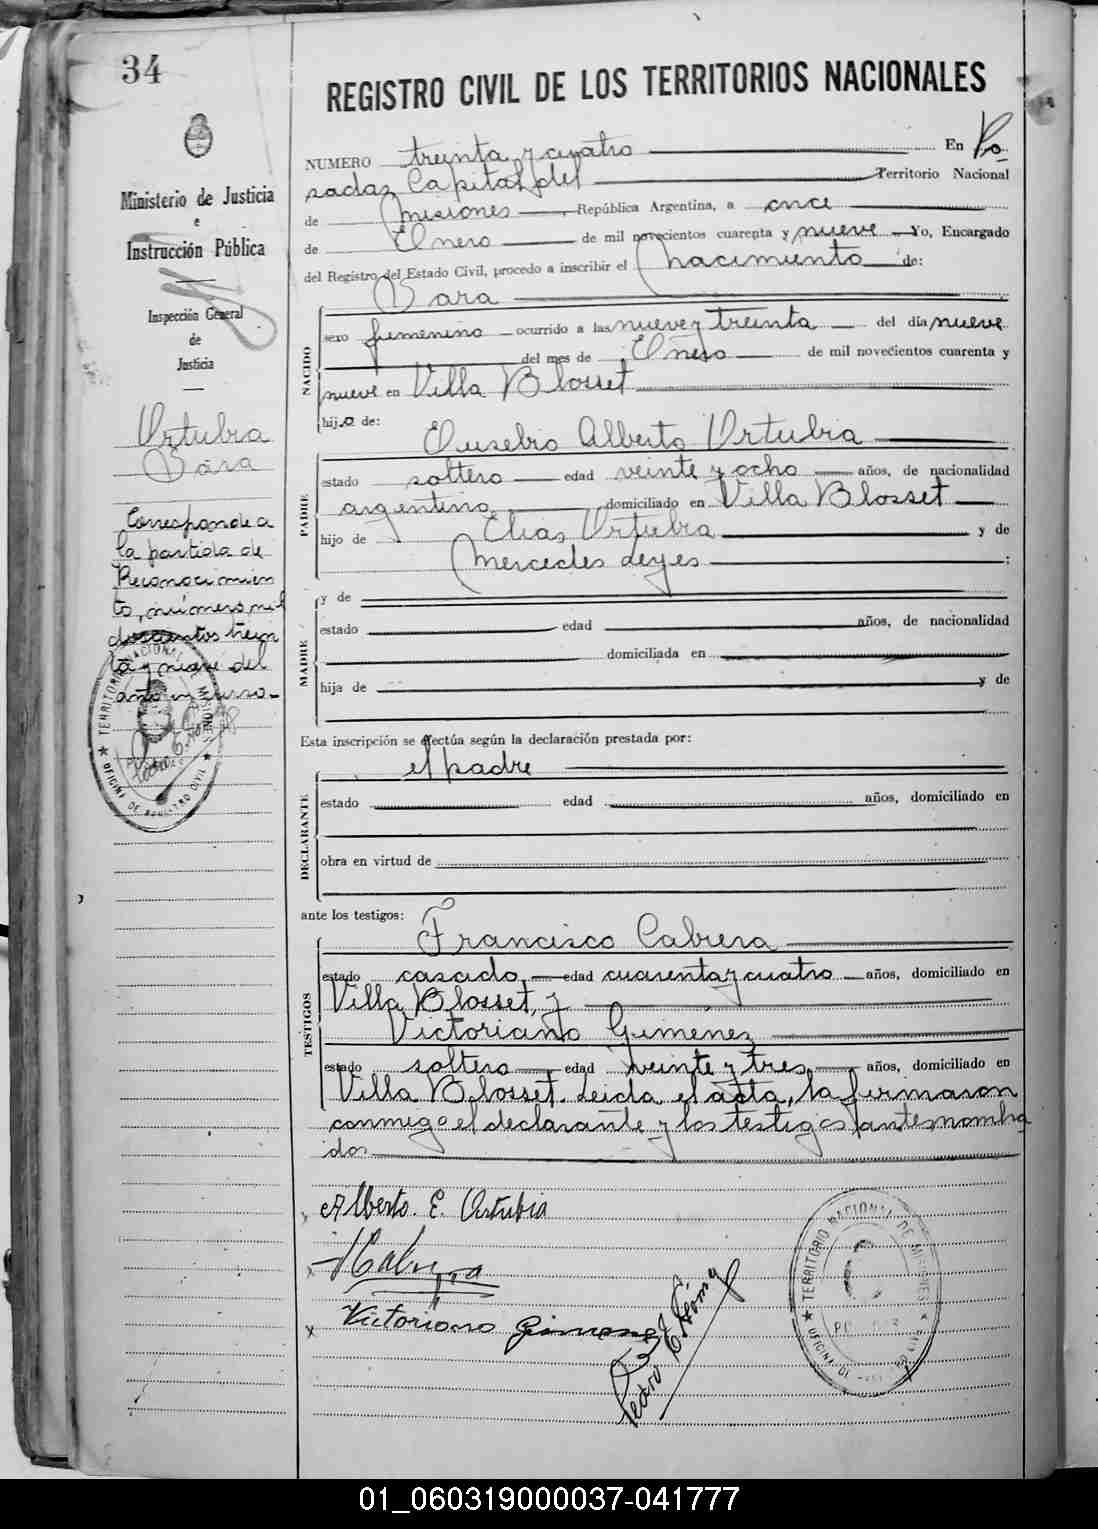 34
REGISTRO CIVIL DE LOS TERRITORIOS NACIONALES
Ministerio de Justicia
e
Instrucción Pública
Inspección General
de
Justicia
Urtubia
Sara
Corresponde a
la partida de
Reconocimien
to, número mil
doscientos trein
ta y nueve del
año en curso.-
NUMERO treinta y cuatro En Po
sadas Capital del Territorio Nacional
de Misiones, República Argentina, a once
de Enero de mil novecientos cuarenta y nueve Yo, Encargado
del Registro del Estado Civil, procedo a inscribir el nacimiento de:
Sara
NACIDO
sexo femenino ocurrido a las nueve y treinta del día nueve
del mes de Enero de mil novecientos cuarenta y
nueve en Villa Blosset
hija de:
Eusebio Alberto Urtubia
PADRE
estado soltero edad veinte y ocho años, de nacionalidad
argentina domiciliado en Villa Blosset
hijo de Elias Urtubia y de
Mercedes Leyes :
MADRE
y de
estado edad años, de nacionalidad
domiciliada en
hija de y de
Esta inscripción se efectúa según la declaración prestada por:
el padre
DECLARANTE
estado edad años, domiciliado en
obra en virtud de
ante los testigos:
Francisco Cabrera
TESTIGOS
estado casado edad cuarenta y cuatro años, domiciliado en
Villa Blosset, y
Victoriano Gimenez
estado soltero edad veinte y tres años, domiciliado en
Villa Blosset. Leida el acta, la firmaron
conmigo el declarante y los testigos antesnombra
dos
Alberto. E. Urtubia
Cabrera
Victoriano Gimenez
Pedro E.
TERRITORIO NACIONAL DE MISIONES
OFICINA DE REGISTRO CIVIL
TERRITORIO NACIONAL DE MISIONES
01_060319000037-041777